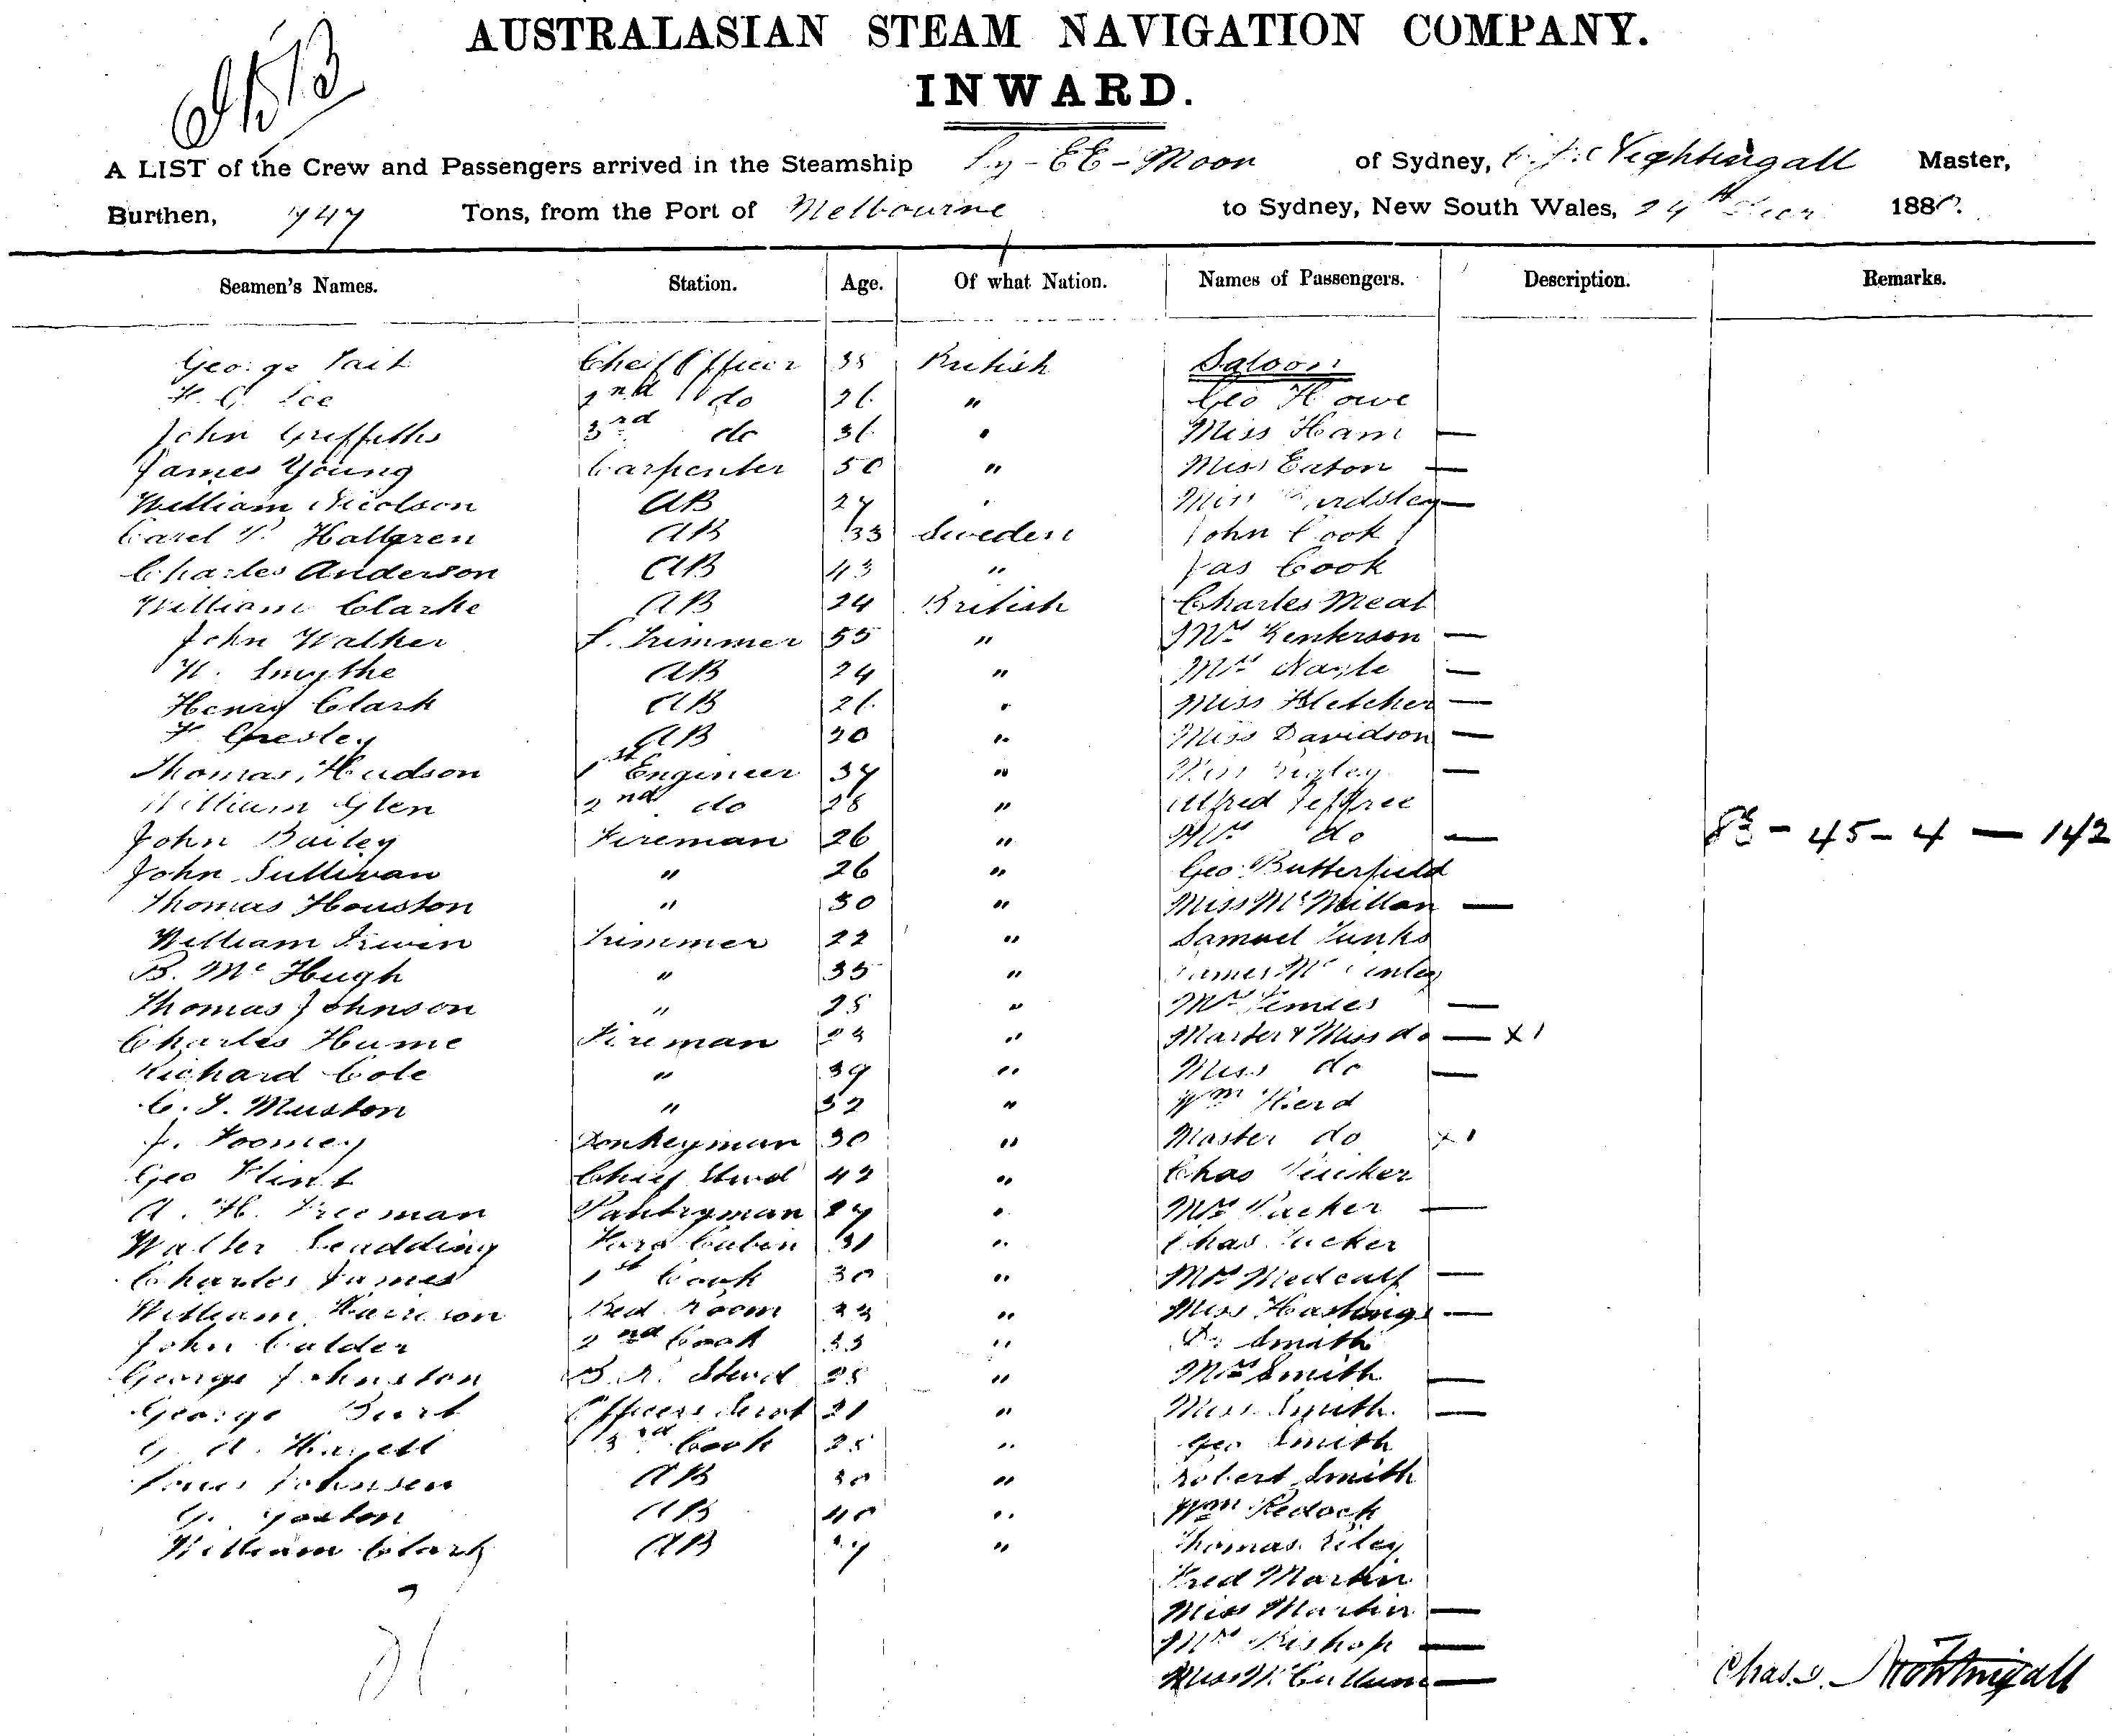 AUSTRALASIAN STEAM NAVIGATION COMPANY.
INWARD.
A LIST of the Crew and Passengers arrived in the Steamship Ly-EE-Moon of Sydney, Nightingall Master,
Burthen, 747 Tons, from the Port of Melbourne to Sydney, New South Wales, 24th 188
Seamen's Names. Station. Age. Of what Nation. Names of Passengers. Description. Remarks.
George Tait Cheif Officer 38 British Saloon
H. G. Lee 2nd do 26 " Geo Howe
John Griffiths 3rd do 36 " Miss Ham —
James Young Carpenter 50 " Miss Eaton —
William Nicolson AB 27 " Miss —
Carel Hallgren AB 33 Sweden John Cook
Charles Anderson AB 43 " Jas Cook
William Clarke AB 24 British Charles Meat
John Walker Trimmer 55 " Mrs Kenterson —
H. Smythe AB 24 " Mrs Nagle —
Henry Clark AB 26 " Miss Fletcher —
F. Gresley AB 20 " Miss Davidson —
Thomas Hudson 1st Engineer 37 " Miss —
William Glen 2nd do 28 " Alfred Jeffree
John Bailey Fireman 26 " Mrs do — - 45 - 4 — 142
John Sullivan " 26 " Geo Butterfield
Thomas Houston " 30 " Miss McMillan —
William Irwin Trimmer 22 " Samuel Tunks
B. McHugh " 35 " James
Thomas Johnson " 25 " Mrs —
Charles Hume Fireman " Master & Miss do — x1
Richard Cole " 39 " Miss do —
C. J. Muston " 32 " Wm Herd
J. Toomey Donkeyman 30 " Master do x1
Geo Flint Chief Stwd 42 " Chas Tucker
A. H. Freeman Pantryman 27 " Mrs Tucker —
Walter Leadding Fore Cabin 31 " Chas Tucker
Charles James 1st Cook 30 " Mrs Medcalf —
William Harrison Bed Room " Miss Hastings —
John Calder 2nd Cook 33 " Dr Smith
George Johnston B. R. Stwd 25 " Mrs Smith —
George Burt Officers Servt 21 " Miss Smith —
G. A. 3rd Cook 25 " Geo Smith
Johnsen AB 30 " Robert Smith
G. Yoxton AB 40 " Wm Redock
William Clark AB " Thomas Riley
Fred Martin
Miss Martin —
Mrs Bishop —
Miss McCullum —
Chas. J. Nightingall